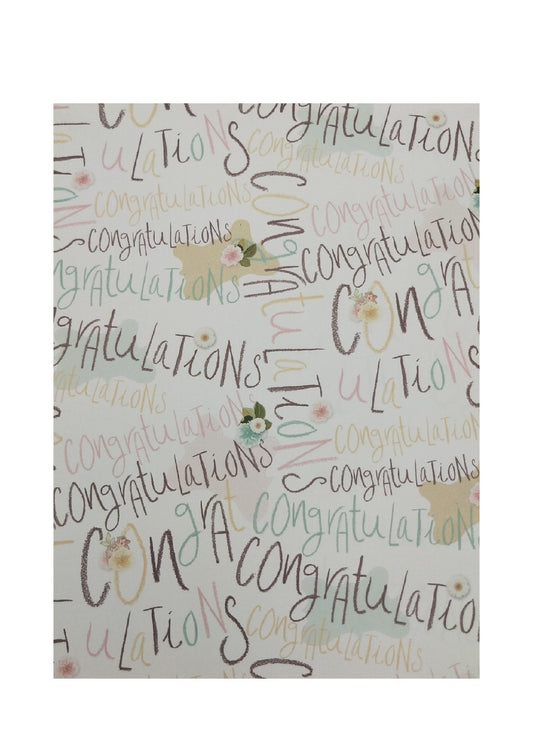 Congratulations
ulations
Congratulations
Congratulations
Congratulations
Congratulations
Congratulations
Congratulations
ngratulations
Congratulations
ongratulations
Congrat
ulations
ngratulations
Congratulations
Congratulations
Congratulations
Congratulations
Congratulations
Congrat
ulations
Congratulations
Congratulations